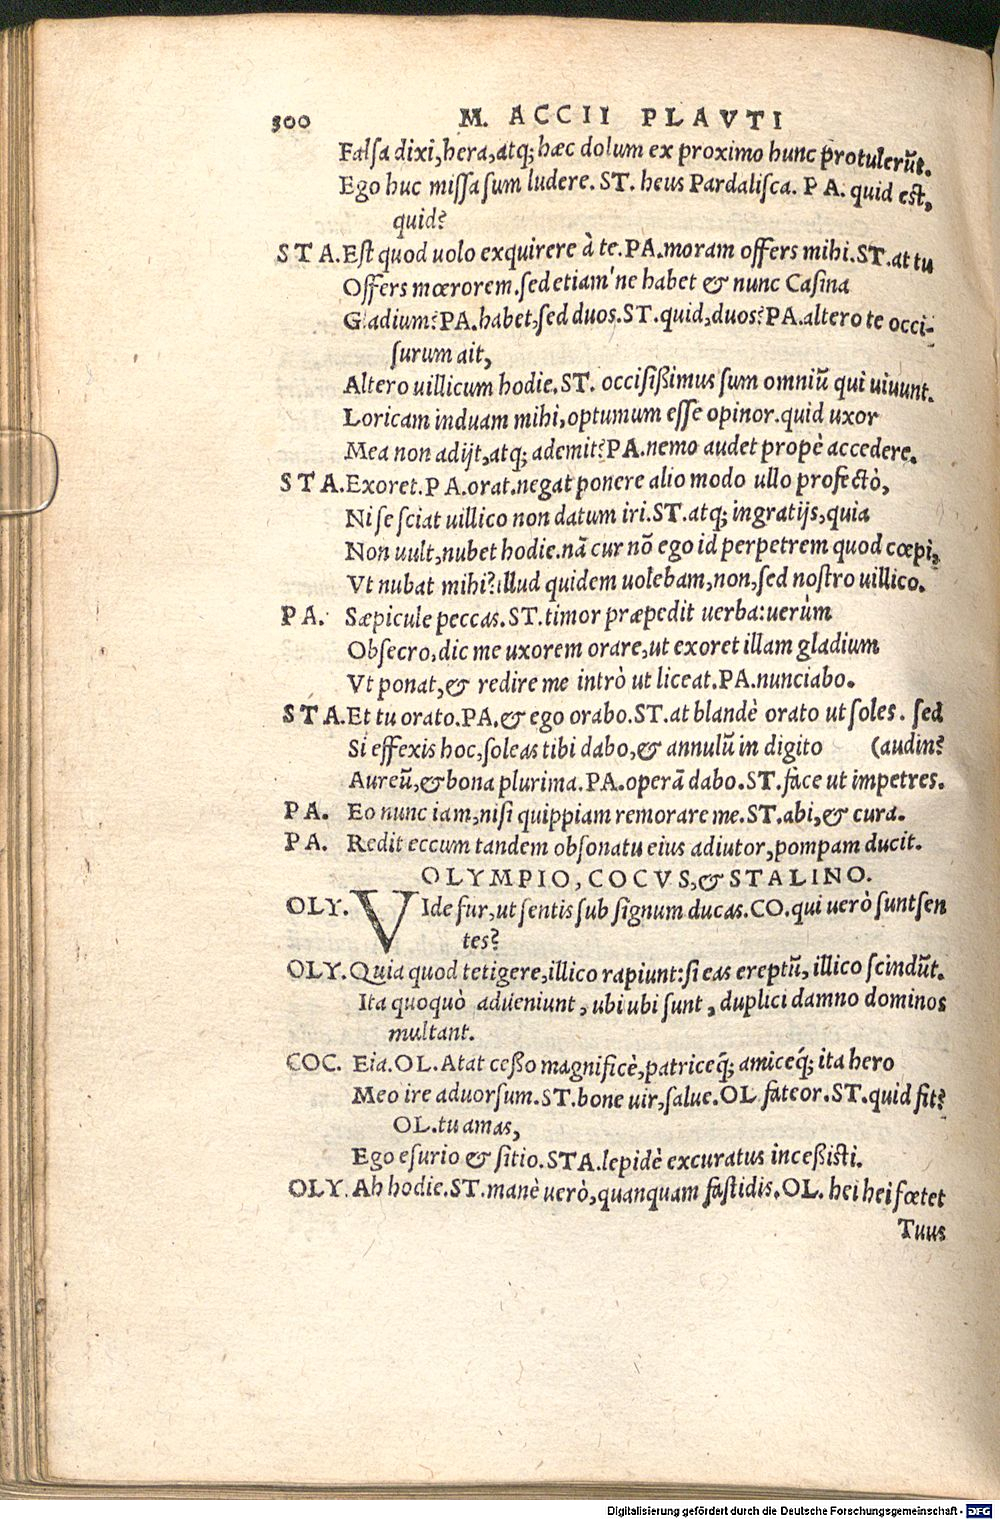 300 M. ACCII PLAVTI
Falſa dixi, hera, atq; hæc dolum ex proximo hunc protulerũt.
Ego huc miſſa ſum ludere. ST. heus Pardaliſca. PA. quid eſt,
quid?
STA. Eſt quod uolo exquirere à te. PA. moram offers mihi. ST. at tu
Offers mœrorem. ſed etiam'ne habet & nunc Caſina
Gladium? PA. habet, ſed duos. ST. quid, duos? PA. altero te occi-
ſurum ait,
Altero uillicum hodie. ST. occiſißimus ſum omniũ qui uiuunt.
Loricam induam mihi, optumum eſſe opinor. quid uxor
Mea non adijt, atq; ademit? PA. nemo audet propè accedere.
STA. Exoret. PA. orat. negat ponere alio modo ullo profectò,
Ni ſe ſciat uillico non datum iri. ST. atq; ingratijs, quia
Non uult, nubet hodie. nã cur nõ ego id perpetrem quod cœpi,
Vt nubat mihi? illud quidem uolebam, non, ſed noſtro uillico.
PA. Sæpicule peccas. ST. timor præpedit uerba: uerùm
Obſecro, dic me uxorem orare, ut exoret illam gladium
Vt ponat, & redire me intrò ut liceat. PA. nunciabo.
STA. Et tu orato. PA. & ego orabo. ST. at blandè orato ut ſoles. ſed
Si effexis hoc, ſoleas tibi dabo, & annulũ in digito (audin?
Aureũ, & bona plurima. PA. operã dabo. ST. face ut impetres.
PA. Eo nunc iam, niſi quippiam remorare me. ST. abi, & cura.
PA. Redit eccum tandem obſonatu eius adiutor, pompam ducit.
OLYMPIO, COCVS, & STALINO.
OLY. VIde fur, ut ſentis ſub ſignum ducas. CO. qui uerò ſunt ſen
tes?
OLY. Quia quod tetigere, illico rapiunt: ſi eas ereptũ, illico ſcindũt.
Ita quoquò adueniunt, ubi ubi ſunt, duplici damno dominos
multant.
COC. Eia. OL. Atat ceßo magnificè, patriceq́; amiceq́; ita hero
Meo ire aduorſum. ST. bone uir, ſalue. OL fateor. ST. quid fit?
OL. tu amas,
Ego eſurio & ſitio. STA. lepidè excuratus inceßiſti.
OLY. Ah hodie. ST. manè uerò, quanquam faſtidis. OL. hei hei fœtet
Tuus
Digitalisierung gefördert durch die Deutsche Forschungsgemeinschaft - DFG